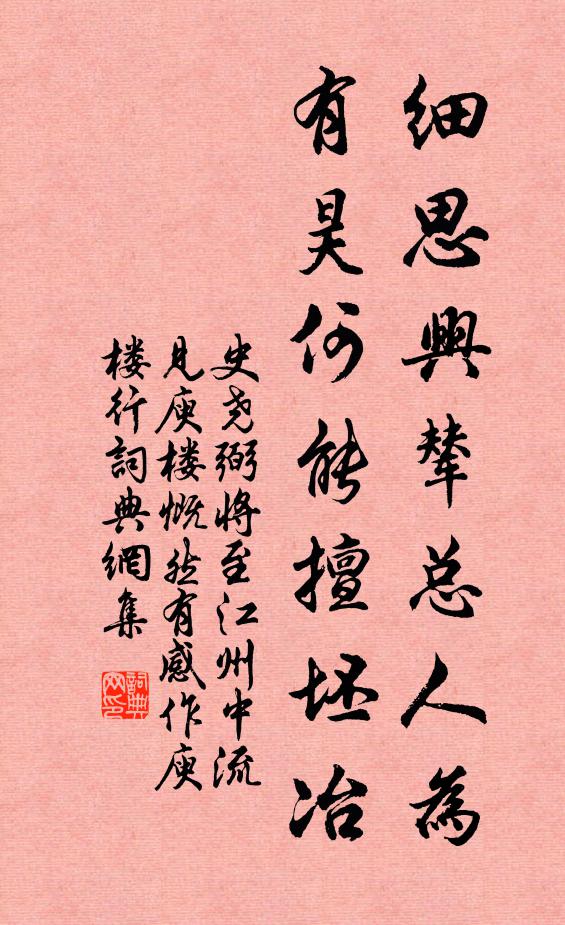 细思興輦总人為
有昊何能擅坯冶
史尧弼将至江州中流
见庾楼慨然有感作庾
楼行詞典網集
詞典网印